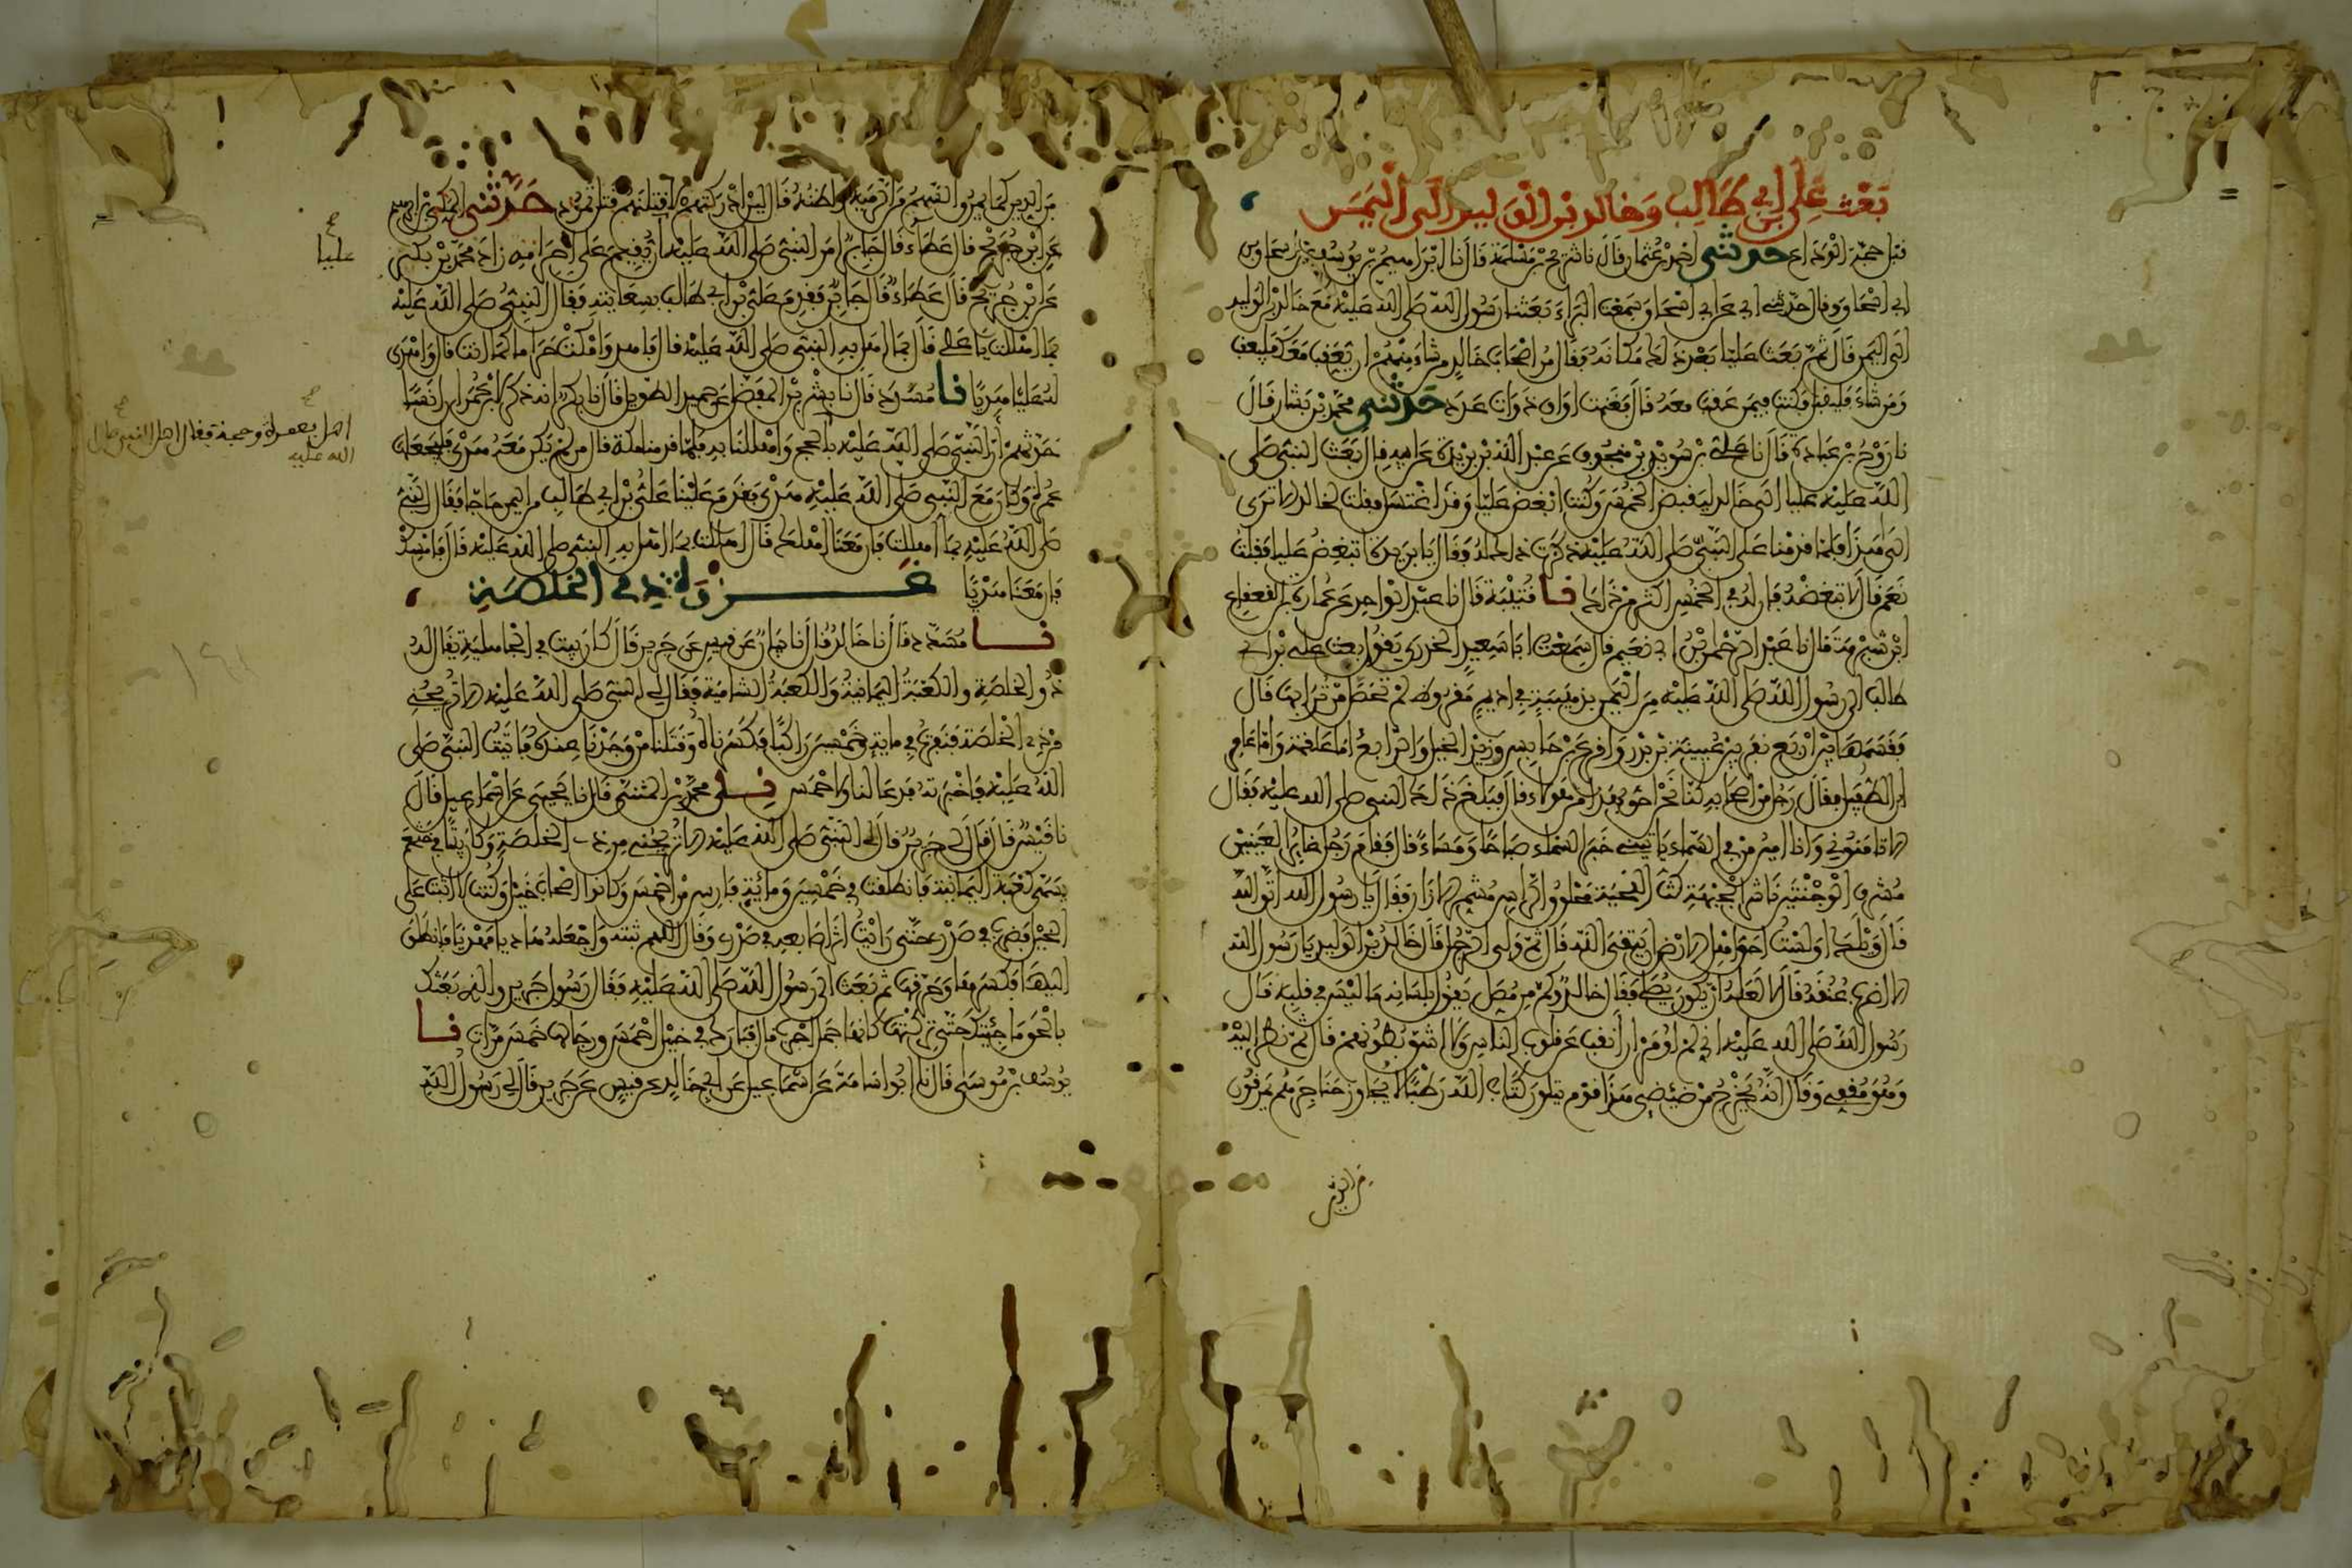 بعث علي بن ابي طالب وخالد بن الوليد الى اليمن
قبل حجة الوداع حدثني احمد بن عثمان قال نا شريح بن مسلمة قال نا ابراهيم بن يوسف بن اسحاق بن
ابي اسحاق قال حدثني ابي عن ابي اسحاق سمعت البراء بعثنا رسول الله صلى الله عليه مع خالد بن الوليد
الى اليمن قال ثم بعث عليا بعد ذلك مكانه فقال مر اصحاب خالد من شاء منهم ان يعقب معك فليعقب
ومن شاء فليقبل فكنت فيمن عقب معه قال فغنمت اواق ذوات عدد حدثني محمد بن بشار قال
نا روح بن عبادة قال نا علي بن سويد بن منجوف عن عبد الله بن بريدة عن ابيه قال بعث النبي صلى
الله عليه عليا الى خالد ليقبض الخمس وكنت ابغض عليا وقد اغتسل فقلت لخالد الا ترى
الى هذا فلما قدمنا على النبي صلى الله عليه ذكرت ذلك له فقال يا بريدة اتبغض عليا فقلت
نعم قال لا تبغضه فان له في الخمس اكثر من ذلك نا قتيبة قال نا عبد الواحد عن عمارة بن القعقاع
ابن شبرمة قال نا عبد الرحمن بن ابي نعيم قال سمعت ابا سعيد الخدري يقول بعث علي بن ابي
طالب الى رسول الله صلى الله عليه من اليمن بذهيبة في اديم مقروظ لم تحصل من ترابها قال
فقسمها بين اربع نفر بين عيينة بن بدر واقرع بن حابس وزيد الخيل والرابع اما علقمة واما عامر
ابن الطفيل فقال رجل من اصحابه كنا نحن احق بهذا من هؤلاء قال فبلغ ذلك النبي صلى الله عليه فقال
الا تامنوني وانا امين من في السماء ياتيني خبر السماء صباحا ومساء قال فقام رجل غائر العينين
مشرف الوجنتين ناشز الجبهة كث اللحية محلوق الراس مشمر الازار فقال يا رسول الله اتق الله
قال ويلك اولست احق اهل الارض ان يتقي الله قال ثم ولى الرجل قال خالد بن الوليد يا رسول الله
الا اضرب عنقه قال لا لعله ان يكون يصلي فقال خالد وكم من مصل يقول بلسانه ما ليس في قلبه قال
رسول الله صلى الله عليه اني لم اومر ان انقب عن قلوب الناس ولا اشق بطونهم قال ثم نظر اليه
وهو مقفي وقال انه يخرج من ضئضئ هذا قوم يتلون كتاب الله رطبا لا يجاوز حناجرهم يمرقون
من الدين
من الدين كما يمرق السهم من الرمية واظنه قال لئن ادركتهم لاقتلنهم قتل ثمود حدثني المكي بن ابراهيم
عن ابن جريج قال عطاء قال جابر امر النبي صلى الله عليه ان يقيم على احرامه زاد محمد بن بكر
عن ابن جريج قال عطاء قال جابر فقدم علي بن ابي طالب بسعايته فقال النبي صلى الله عليه
بما اهللت يا علي قال بما اهل به النبي صلى الله عليه قال فاهد وامكث حراما كما انت قال واهدى
له علي هديا نا مسدد قال نا بشر بن المفضل عن حميد الطويل قال نا بكر انه ذكر لابن عمر ان انسا
حدثهم ان النبي صلى الله عليه بالحج واهللنا به فلما قدمنا مكة قال من لم يكن معه هدي فليجعلها
عمرة وكان مع النبي صلى الله عليه هدي فقدم علينا علي بن ابي طالب من اليمن حاجا فقال النبي
صلى الله عليه بما اهللت فان معنا اهلك قال اهللت بما اهل به النبي صلى الله عليه قال فامسك
فان معنا هديا غزوة ذي الخلصة
نا مسدد قال نا خالد قال نا بيان عن قيس عن جرير قال كان بيت في الجاهلية يقال له
ذو الخلصة والكعبة اليمانية والكعبة الشامية فقال لي النبي صلى الله عليه الا تريحني
من ذي الخلصة فنفرت في ماية وخمسين راكبا فكسرناه وقتلنا من وجدنا عنده فاتيت النبي صلى
الله عليه فاخبرته فدعا لنا ولاحمس نا محمد بن المثنى قال نا يحيى عن اسماعيل قال
نا قيس قال قال لي جرير قال لي النبي صلى الله عليه الا تريحني من ذي الخلصة وكان بيتا في خثعم
يسمى كعبة اليمانية فانطلقت في خمسين ومائة فارس من احمس وكانوا اصحاب خيل وكنت لا اثبت على
الخيل فضرب في صدري حتى رايت اثر اصابعه في صدري وقال اللهم ثبته واجعله هاديا مهديا فانطلق
اليها فكسرها وحرقها ثم بعث الى رسول الله صلى الله عليه فقال رسول جرير والذي بعثك
بالحق ما جئتك حتى تركتها كانها جمل اجرب قال فبارك في خيل احمس ورجالها خمس مرات نا
يوسف بن موسى قال نا ابو اسامة عن اسماعيل عن ابي خالد عن قيس عن جرير قال لي رسول الله
عليا
اهل بعمرة وحجة فقال اهل النبي صلى
الله عليه